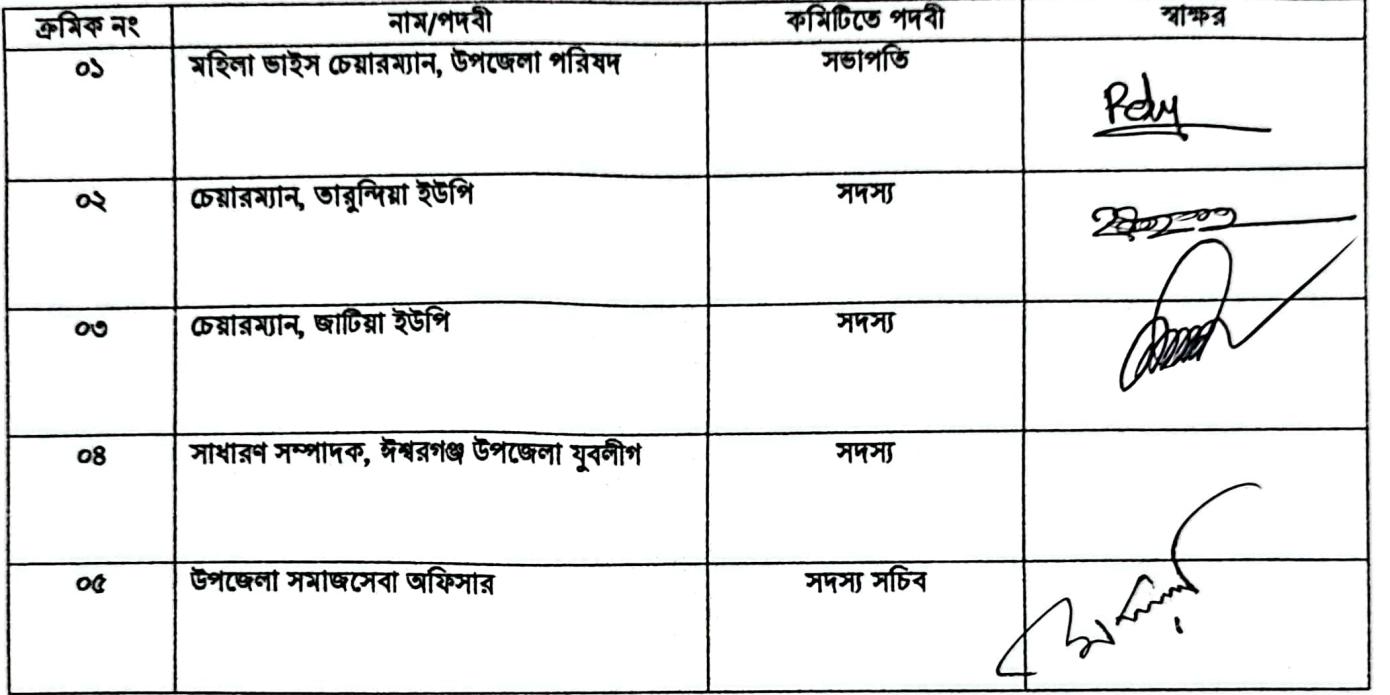 ক্রমিক নং নাম/পদবী কমিটিতে পদবী স্বাক্ষর
০১ মহিলা ভাইস চেয়ারম্যান, উপজেলা পরিষদ সভাপতি
০২ চেয়ারম্যান, তারুন্দিয়া ইউপি সদস্য
০৩ চেয়ারম্যান, জাটিয়া ইউপি সদস্য
০৪ সাধারণ সম্পাদক, ঈশ্বরগঞ্জ উপজেলা যুবলীগ সদস্য
০৫ উপজেলা সমাজসেবা অফিসার সদস্য সচিব